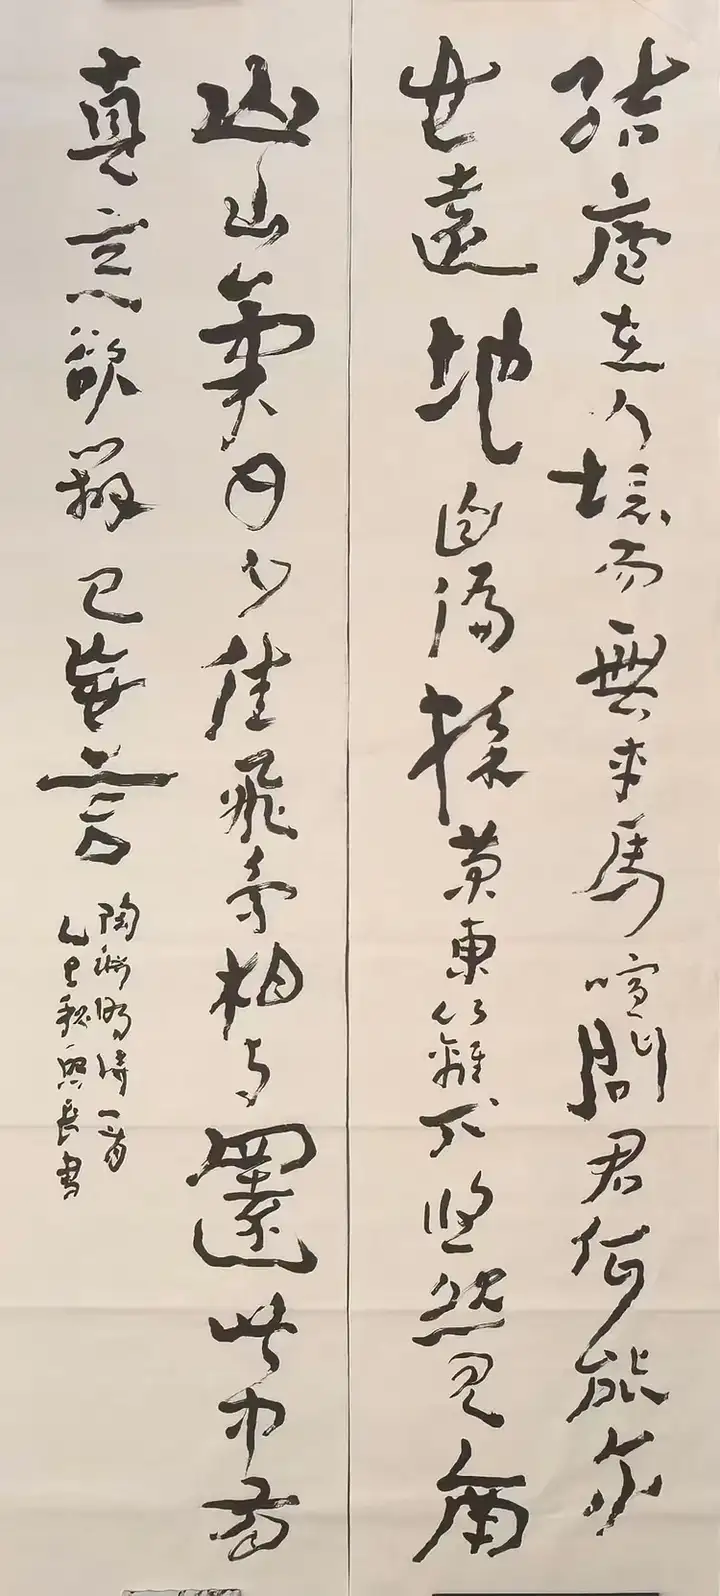 結廬在人境而無車馬喧問君何能尔
世遠地自偏採菊東籬下悠然見南
山山氣日夕佳飛鳥相与還此中有
真意欲辨已無言
陶渊明詩一首
乙巳秋興長書